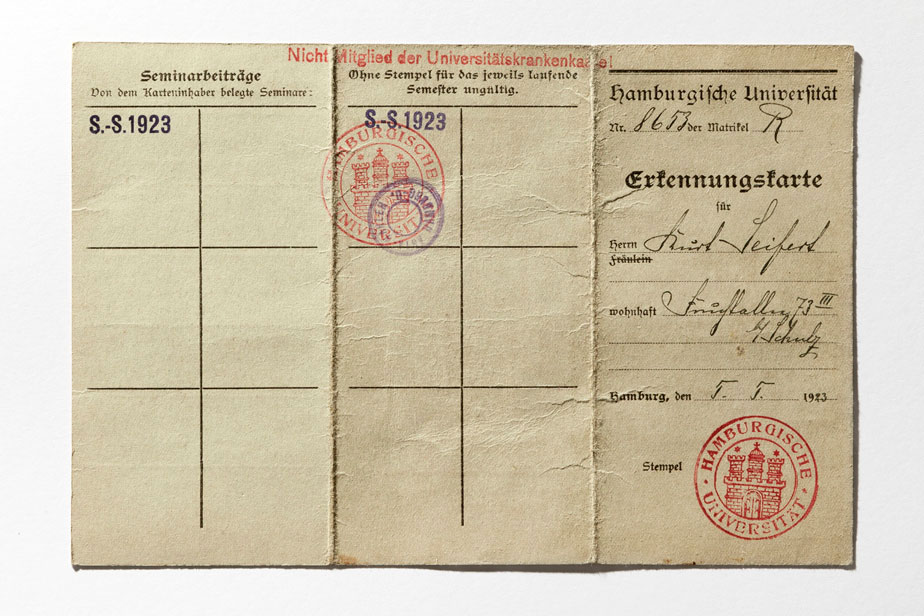 Nicht Mitglied der Universitätskrankenkasse!
Seminarbeiträge
Von dem Karteninhaber belegte Seminare:
S.-S.1923
Ohne Stempel für das jeweils laufende
Semester ungültig.
S.-S.1923
HAMBURGISCHE
UNIVERSITÄT
Hamburgische Universität
Nr. 8653 der Matrikel R
Erkennungskarte
für
Herrn Kurt Seifert
Fräulein
wohnhaft 73 III
Schulz
Hamburg, den 1923
Stempel
HAMBURGISCHE
UNIVERSITÄT